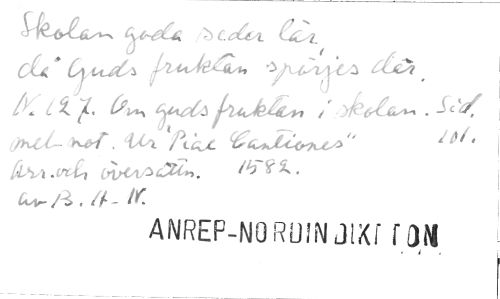 Skolan goda seder lär,
då Guds fruktan spörjes där.
N. 127. Om gudsfruktan i skolan. Sid.
mel-not. Ur "Piae Cantiones" 101.
Arr. och översättn. 1582.
av B. A-N.
ANREP-NORDIN